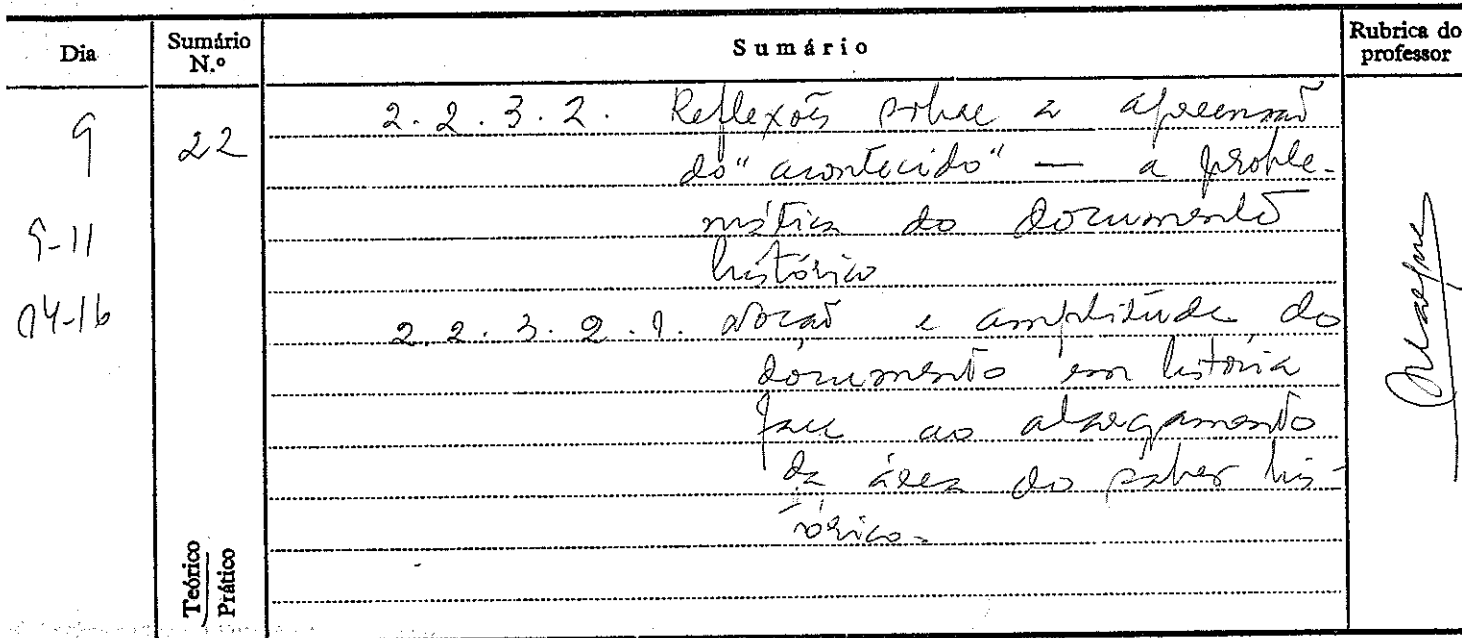 Dia
Sumário N.º
Sumário
Rubrica do professor
9
22
9-11
14-16
2.2.3.2. Reflexões sobre a apreensão
do "acontecido" — a proble-
mática do documento
histórico
2.2.3.2.1. Noção e amplitude do
documento em história
face ao alargamento
da área do saber his-
tórico.
Teórico
Prático